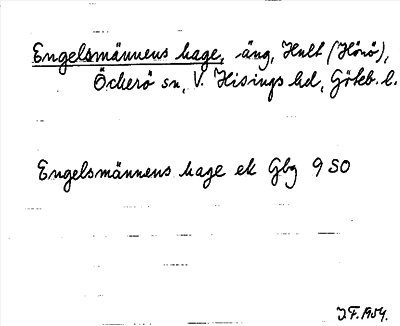 Engelsmännens hage, äng, Hult (Hönö),
Öckerö sn, V. Hisings hd, Göteb. l.
Engelsmännens hage ek Gbg 9 SO
J.F. 1954.